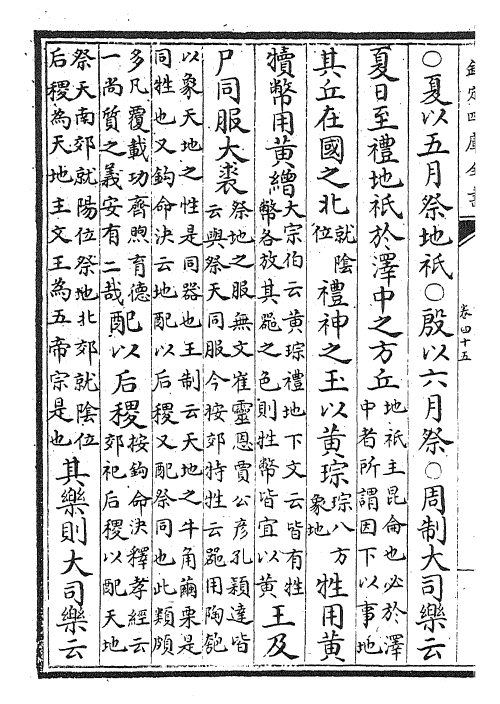 欽定四庫全書
卷四十五
○夏以五月祭地祇○殷以六月祭○周制大司樂云
夏日至禮地祇於澤中之方丘
地祇主昆侖也必於澤
中者所謂因下以事地
其丘在國之北
就陰
位
禮神之玉以黃琮
琮八方
象地
牲用黃
犢幣用黃繒
大宗伯云黃琮禮地下文云皆有牲
幣各放其器之色則牲幣皆宜以黃
王及
尸同服大裘
祭地之服無文崔靈恩賈公彦孔穎達皆
云與祭天同服今按郊特牲云器用陶匏
以象天地之性是同器也王制云天地之牛角繭栗是
同牲也又鈎命決云地配以后稷又配祭同也此類頗
多凡覆載功齊煦育德
一尚質之義安有二哉
配以后稷
按鈎命決釋孝經云
郊祀后稷以配天地
祭天南郊就陽位祭地北郊就陰位
后稷為天地主文王為五帝宗是也
其樂則大司樂云